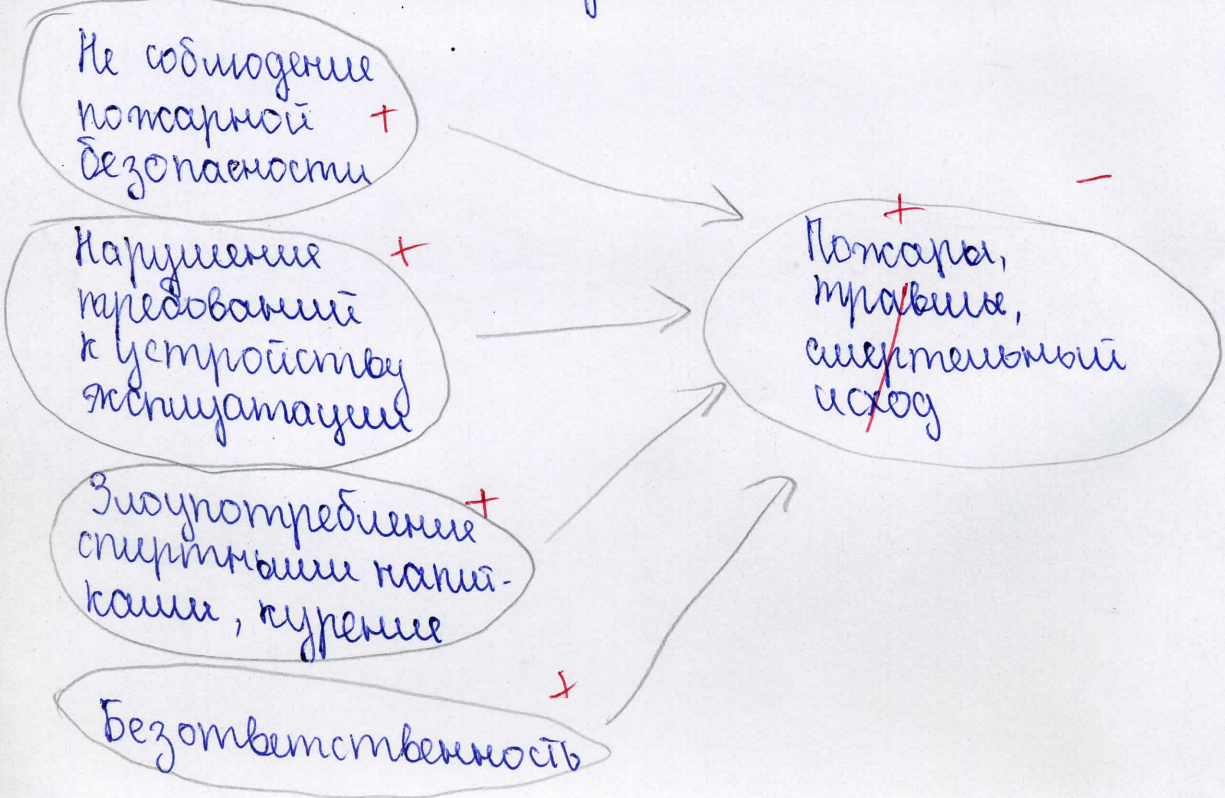 Не соблюдение
пожарной +
безопасности
Нарушения +
требований
к устройству
эксплуатации
Злоупотребление +
спиртными напит-
ками, курение
Безответственность +
+ −
Пожары,
травмы,
смертельный
исход